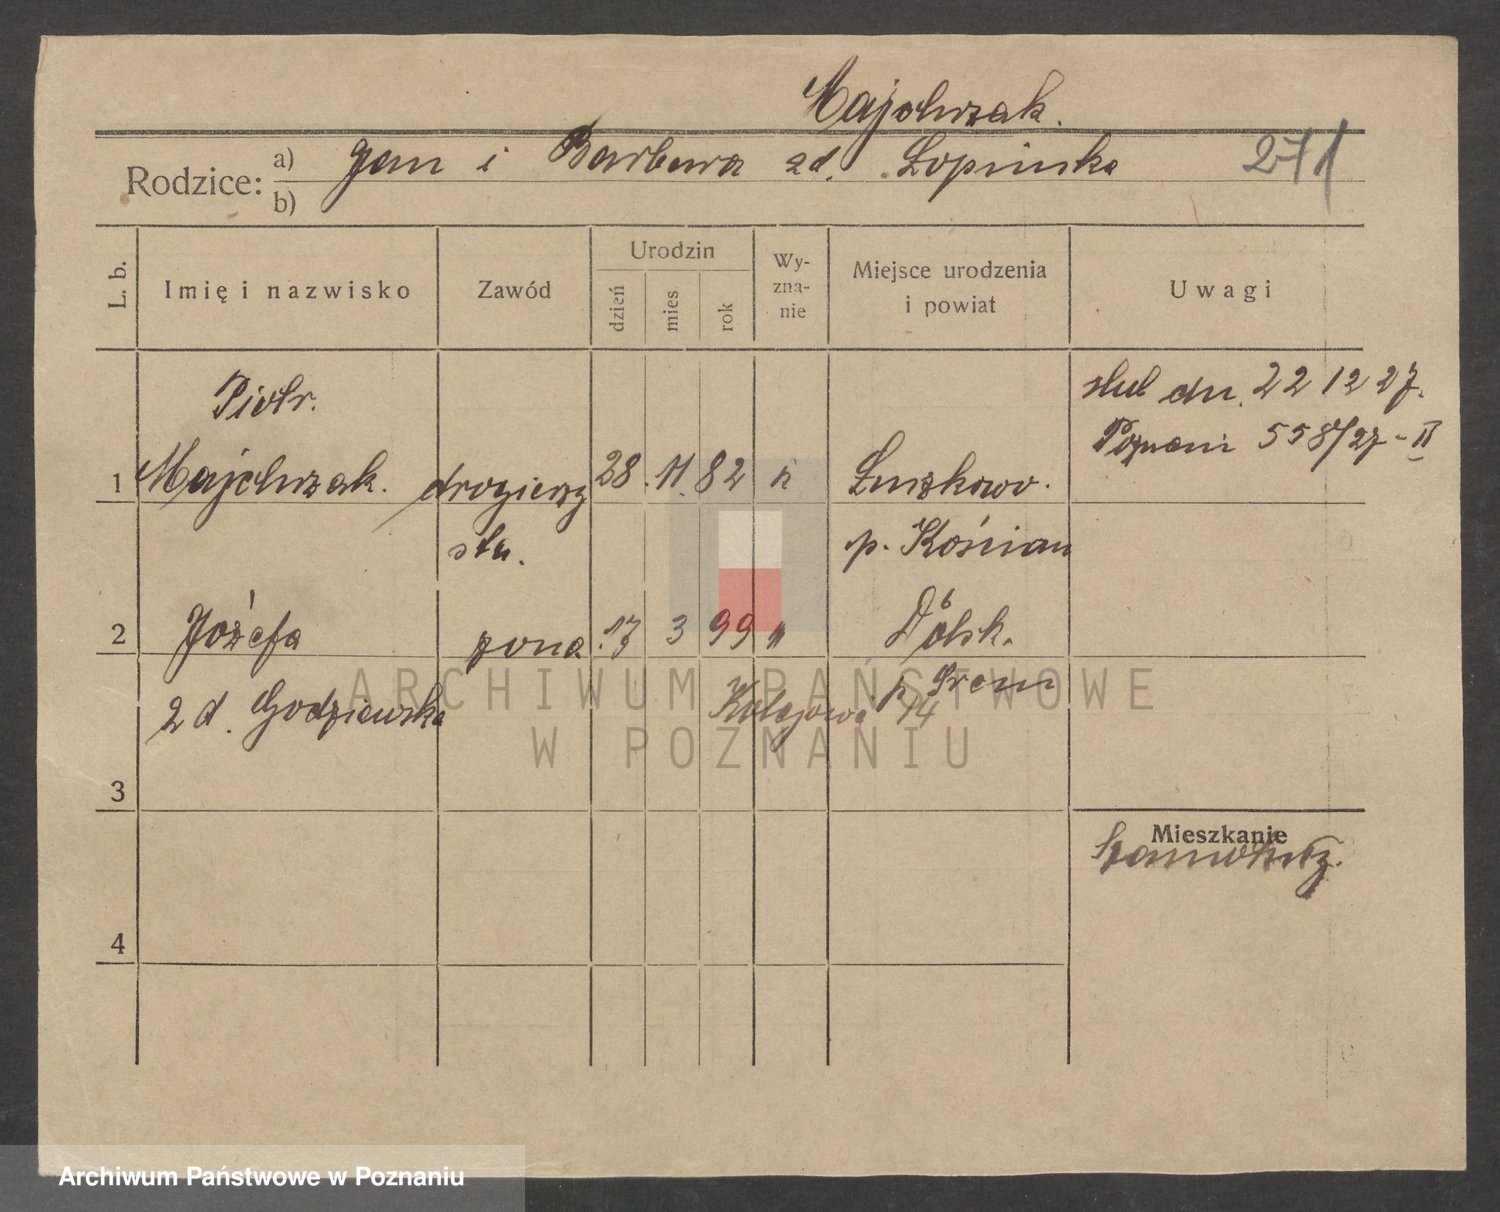 Majchrzak.
Rodzice: a) Jan i Barbara zd. Łopinska 271
b)
L. b. Imię i nazwisko Zawód Urodzin dzień mies rok Wyznanie Miejsce urodzenia i powiat Uwagi
Piotr. ślub dn. 22 12 27.
Poznań 558/27-II
1 Majchrzak. drogierzy 28. 11. 82 k Łuszkowo.
sta. p. Kościan
2 Józefa żona. 17 3 99 " Dolsk.
zd. Godziewska p. Śrem
Kolejowa 14
3
Mieszkanie
4
ARCHIWUM PAŃSTWOWE
W POZNANIU
Archiwum Państwowe w Poznaniu